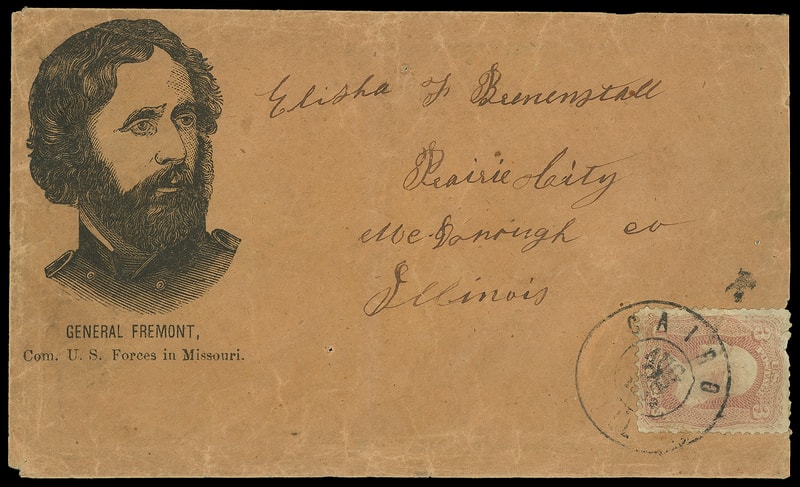 Elisha F Beenenstall
Prairie City
McDonough co
Illinois
GENERAL FREMONT,
Com. U. S. Forces in Missouri.
CAIRO
AUG
3
3